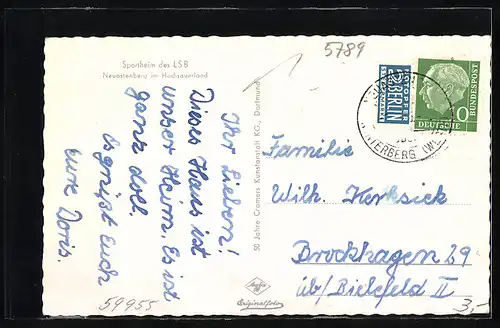 5789
Sportheim des LSB
Neuastenberg im Hochsauerland
Ihr Lieben!
Dieses Haus ist
unser Heim. Es ist
ganz doll.
Es grüßt Euch
eure Doris.
59955
50 Jahre Cramers Kunstanstalt KG., Dortmund
Agfa
Originalfoto
NOTOPFER
2 BERLIN
STEUERMARKE
DEUTSCHE
BUNDESPOST
10
WINTERBERG (WESTF
Familie
Wilh. Kerksick
Brockhagen 29
üb/Bielefeld II
3,-